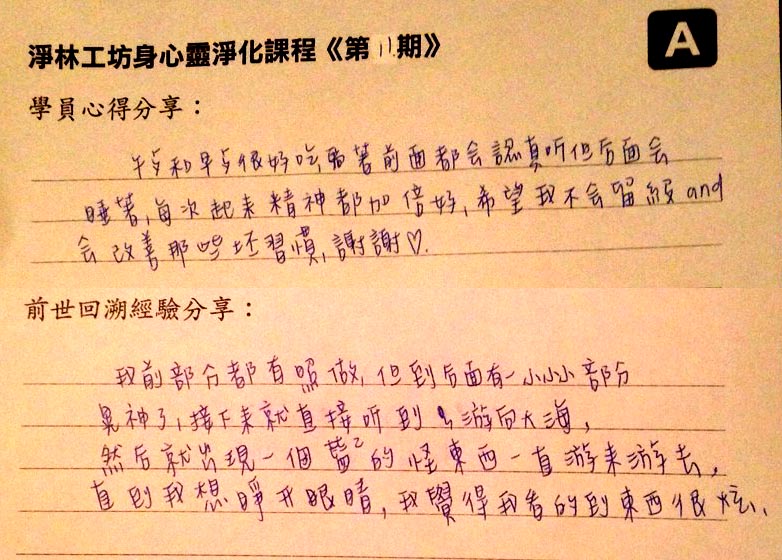 淨林工坊身心靈淨化課程《第11期》
A
學員心得分享：
午ㄘ和早ㄘ很好吃,躺著前面都会認真听但后面会
睡著,每次起来精神都加倍好,希望我不会留級and
会改善那些坏習慣,謝謝♡.
前世回溯經驗分享：
我前部分都有照做,但到后面有一小小小部分
晃神了,接下来就直接听到游向大海,
然后就出現一個藍ㄹ的怪東西一直游来游去,
直到我想睜开眼睛,我覺得我看的到東西很炫、